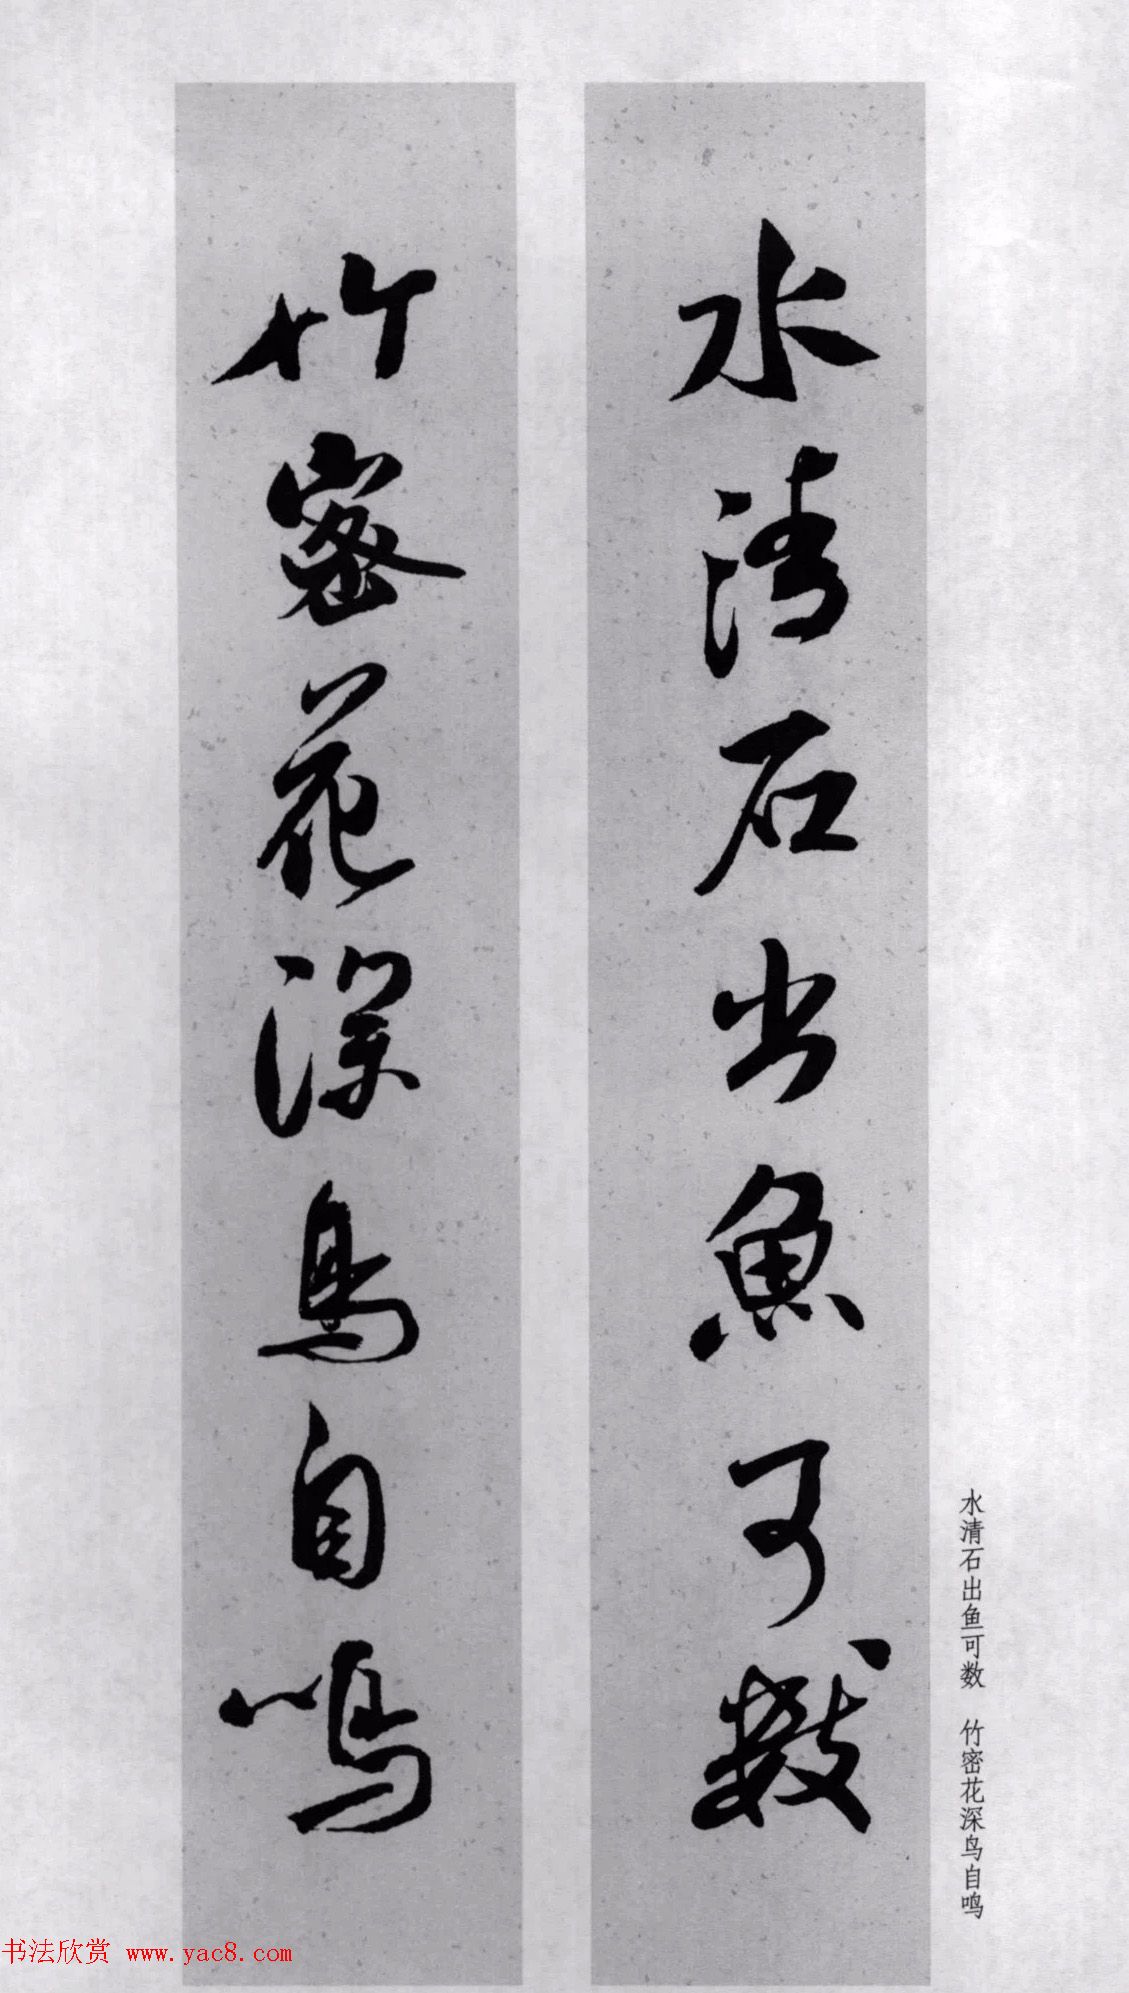 水清石出魚可數
竹密花深鳥自鳴
水清石出鱼可数 竹密花深鸟自鸣
书法欣赏 www.yac8.com